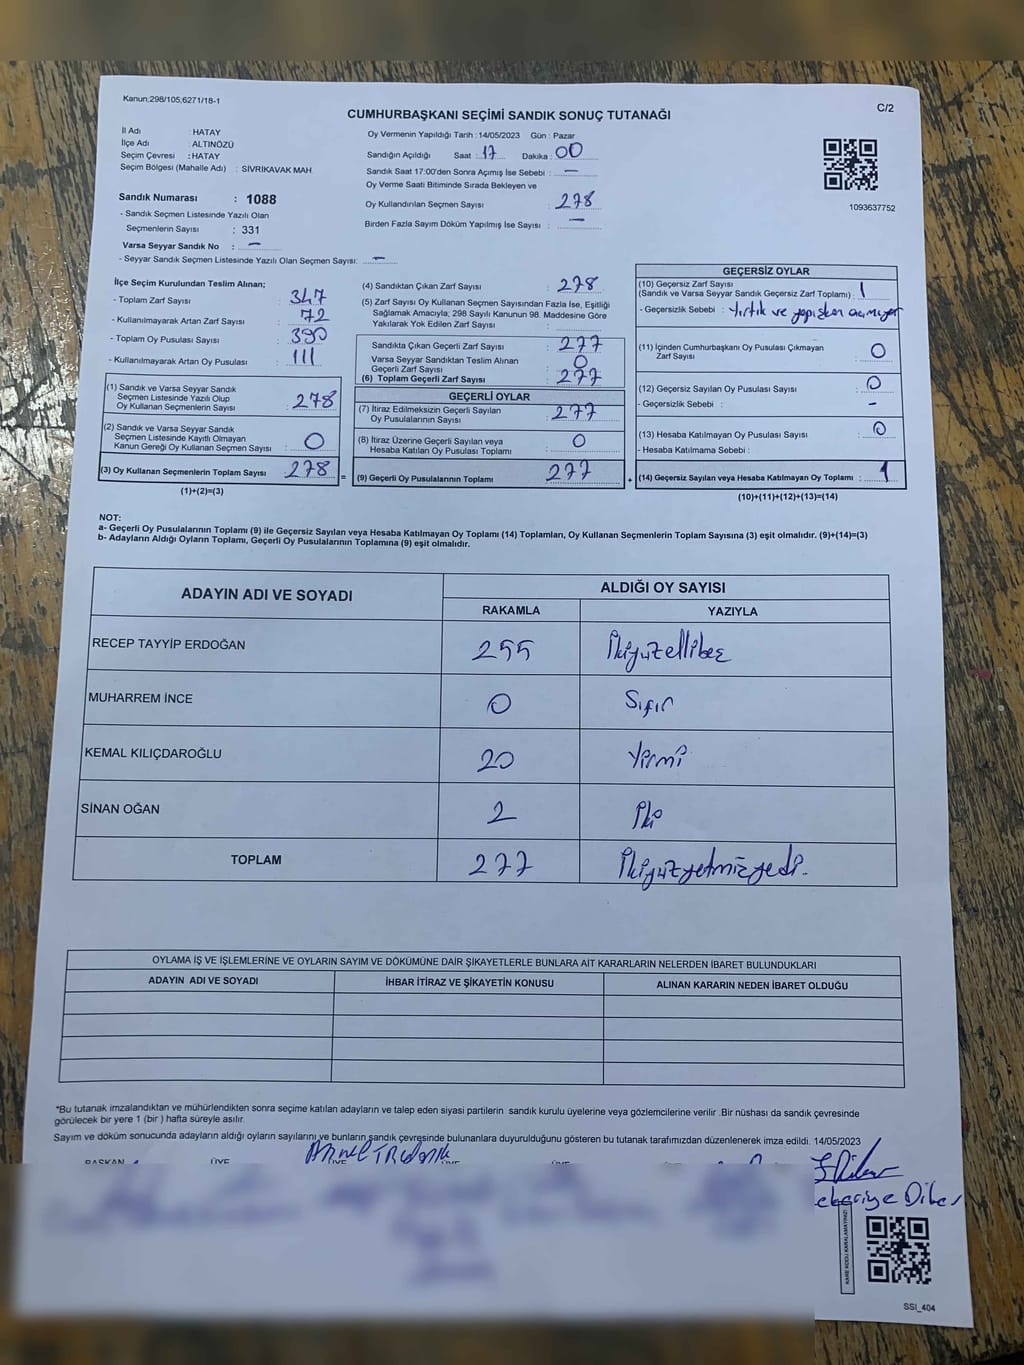 Kanun;298/105,6271/18-1
C/2
CUMHURBAŞKANI SEÇİMİ SANDIK SONUÇ TUTANAĞI
İl Adı : HATAY
İlçe Adı : ALTINÖZÜ
Seçim Çevresi : HATAY
Seçim Bölgesi (Mahalle Adı) : SİVRİKAVAK MAH
Sandık Numarası : 1088
- Sandık Seçmen Listesinde Yazılı Olan
Seçmenlerin Sayısı : 331
Varsa Seyyar Sandık No : -
- Seyyar Sandık Seçmen Listesinde Yazılı Olan Seçmen Sayısı: -
Oy Vermenin Yapıldığı Tarih : 14/05/2023 Gün : Pazar
Sandığın Açıldığı Saat : 17 Dakika : 00
Sandık Saat 17:00'den Sonra Açımış İse Sebebi : -
Oy Verme Saati Bitiminde Sırada Bekleyen ve
Oy Kullandırılan Seçmen Sayısı : 278
Birden Fazla Sayım Döküm Yapılmış İse Sayısı : -
1093637752
İlçe Seçim Kurulundan Teslim Alınan;
- Toplam Zarf Sayısı : 347
- Kullanılmayarak Artan Zarf Sayısı : 72
- Toplam Oy Pusulası Sayısı : 390
- Kullanılmayarak Artan Oy Pusulası : 111
(1) Sandık ve Varsa Seyyar Sandık
Seçmen Listesinde Yazılı Olup
Oy Kullanan Seçmenlerin Sayısı : 278
(2) Sandık ve Varsa Seyyar Sandık
Seçmen Listesinde Kayıtlı Olmayan
Kanun Gereği Oy Kullanan Seçmen Sayısı : 0
(3) Oy Kullanan Seçmenlerin Toplam Sayısı : 278 =
(1)+(2)=(3)
(4) Sandıktan Çıkan Zarf Sayısı : 278
(5) Zarf Sayısı Oy Kullanan Seçmen Sayısından Fazla İse, Eşitliği
Sağlamak Amacıyla, 298 Sayılı Kanunun 98. Maddesine Göre
Yakılarak Yok Edilen Zarf Sayısı :
Sandıkta Çıkan Geçerli Zarf Sayısı : 277
Varsa Seyyar Sandıktan Teslim Alınan
Geçerli Zarf Sayısı : 0
(6) Toplam Geçerli Zarf Sayısı : 277
GEÇERLİ OYLAR
(7) İtiraz Edilmeksizin Geçerli Sayılan
Oy Pusulalarının Sayısı : 277
(8) İtiraz Üzerine Geçerli Sayılan veya
Hesaba Katılan Oy Pusulası Toplamı : 0
(9) Geçerli Oy Pusulalarının Toplamı : 277 +
GEÇERSİZ OYLAR
(10) Geçersiz Zarf Sayısı
(Sandık ve Varsa Seyyar Sandık Geçersiz Zarf Toplamı) : 1
- Geçersizlik Sebebi : Yırtık ve yapışkan açmıyor
(11) İçinden Cumhurbaşkanı Oy Pusulası Çıkmayan
Zarf Sayısı : 0
(12) Geçersiz Sayılan Oy Pusulası Sayısı : 0
- Geçersizlik Sebebi : -
(13) Hesaba Katılmayan Oy Pusulası Sayısı : 0
- Hesaba Katılmama Sebebi :
(14) Geçersiz Sayılan veya Hesaba Katılmayan Oy Toplamı : 1
(10)+(11)+(12)+(13)=(14)
NOT:
a- Geçerli Oy Pusulalarının Toplamı (9) ile Geçersiz Sayılan veya Hesaba Katılmayan Oy Toplamı (14) Toplamları, Oy Kullanan Seçmenlerin Toplam Sayısına (3) eşit olmalıdır. (9)+(14)=(3)
b- Adayların Aldığı Oyların Toplamı, Geçerli Oy Pusulalarının Toplamına (9) eşit olmalıdır.
ADAYIN ADI VE SOYADI ALDIĞI OY SAYISI
RAKAMLA YAZIYLA
RECEP TAYYİP ERDOĞAN 255 İkiyüzellibeş
MUHARREM İNCE 0 Sıfır
KEMAL KILIÇDAROĞLU 20 Yirmi
SİNAN OĞAN 2 İki
TOPLAM 277 İkiyüzyetmişyedi.
OYLAMA İŞ VE İŞLEMLERİNE VE OYLARIN SAYIM VE DÖKÜMÜNE DAİR ŞİKAYETLERLE BUNLARA AİT KARARLARIN NELERDEN İBARET BULUNDUKLARI
ADAYIN ADI VE SOYADI İHBAR İTİRAZ VE ŞİKAYETİN KONUSU ALINAN KARARIN NEDEN İBARET OLDUĞU
"Bu tutanak imzalandıktan ve mühürlendikten sonra seçime katılan adayların ve talep eden siyasi partilerin sandık kurulu üyelerine veya gözlemcilerine verilir .Bir nüshası da sandık çevresinde
görülecek bir yere 1 (bir ) hafta süreyle asılır.
Sayım ve döküm sonucunda adayların aldığı oyların sayılarını ve bunların sandık çevresinde bulunanlara duyurulduğunu gösteren bu tutanak tarafımızdan düzenlenerek imza edildi. 14/05/2023
BAŞKAN ÜYE ÜYE ÜYE
KARE KODU KARALAMAYINIZ!
SSI_404